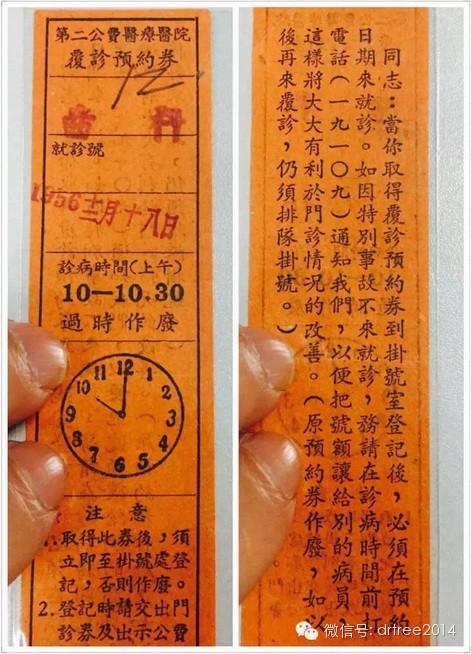 第二公費醫療醫院
覆診預約券
12
齒科
就診號
1956十二月十八日
診病時間(上午)
10—10.30
過時作廢
12
1
2
3
4
5
6
7
8
9
10
11
注意
1.取得此券後,須
立即至掛號處登
記,否則作廢。
2.登記時請交出門
診券及出示公費
同志:當你取得覆診預約券到掛號室登記後,必須在預約
日期來就診。如因特別事故不來就診,務請在診病時間前打
電話(一九一〇九)通知我們,以便把號額讓給別的病員,
這樣將大大有利於門診情況的改善。(原預約券作廢,如以
後再來覆診,仍須排隊掛號。)
微信号: drtree2014